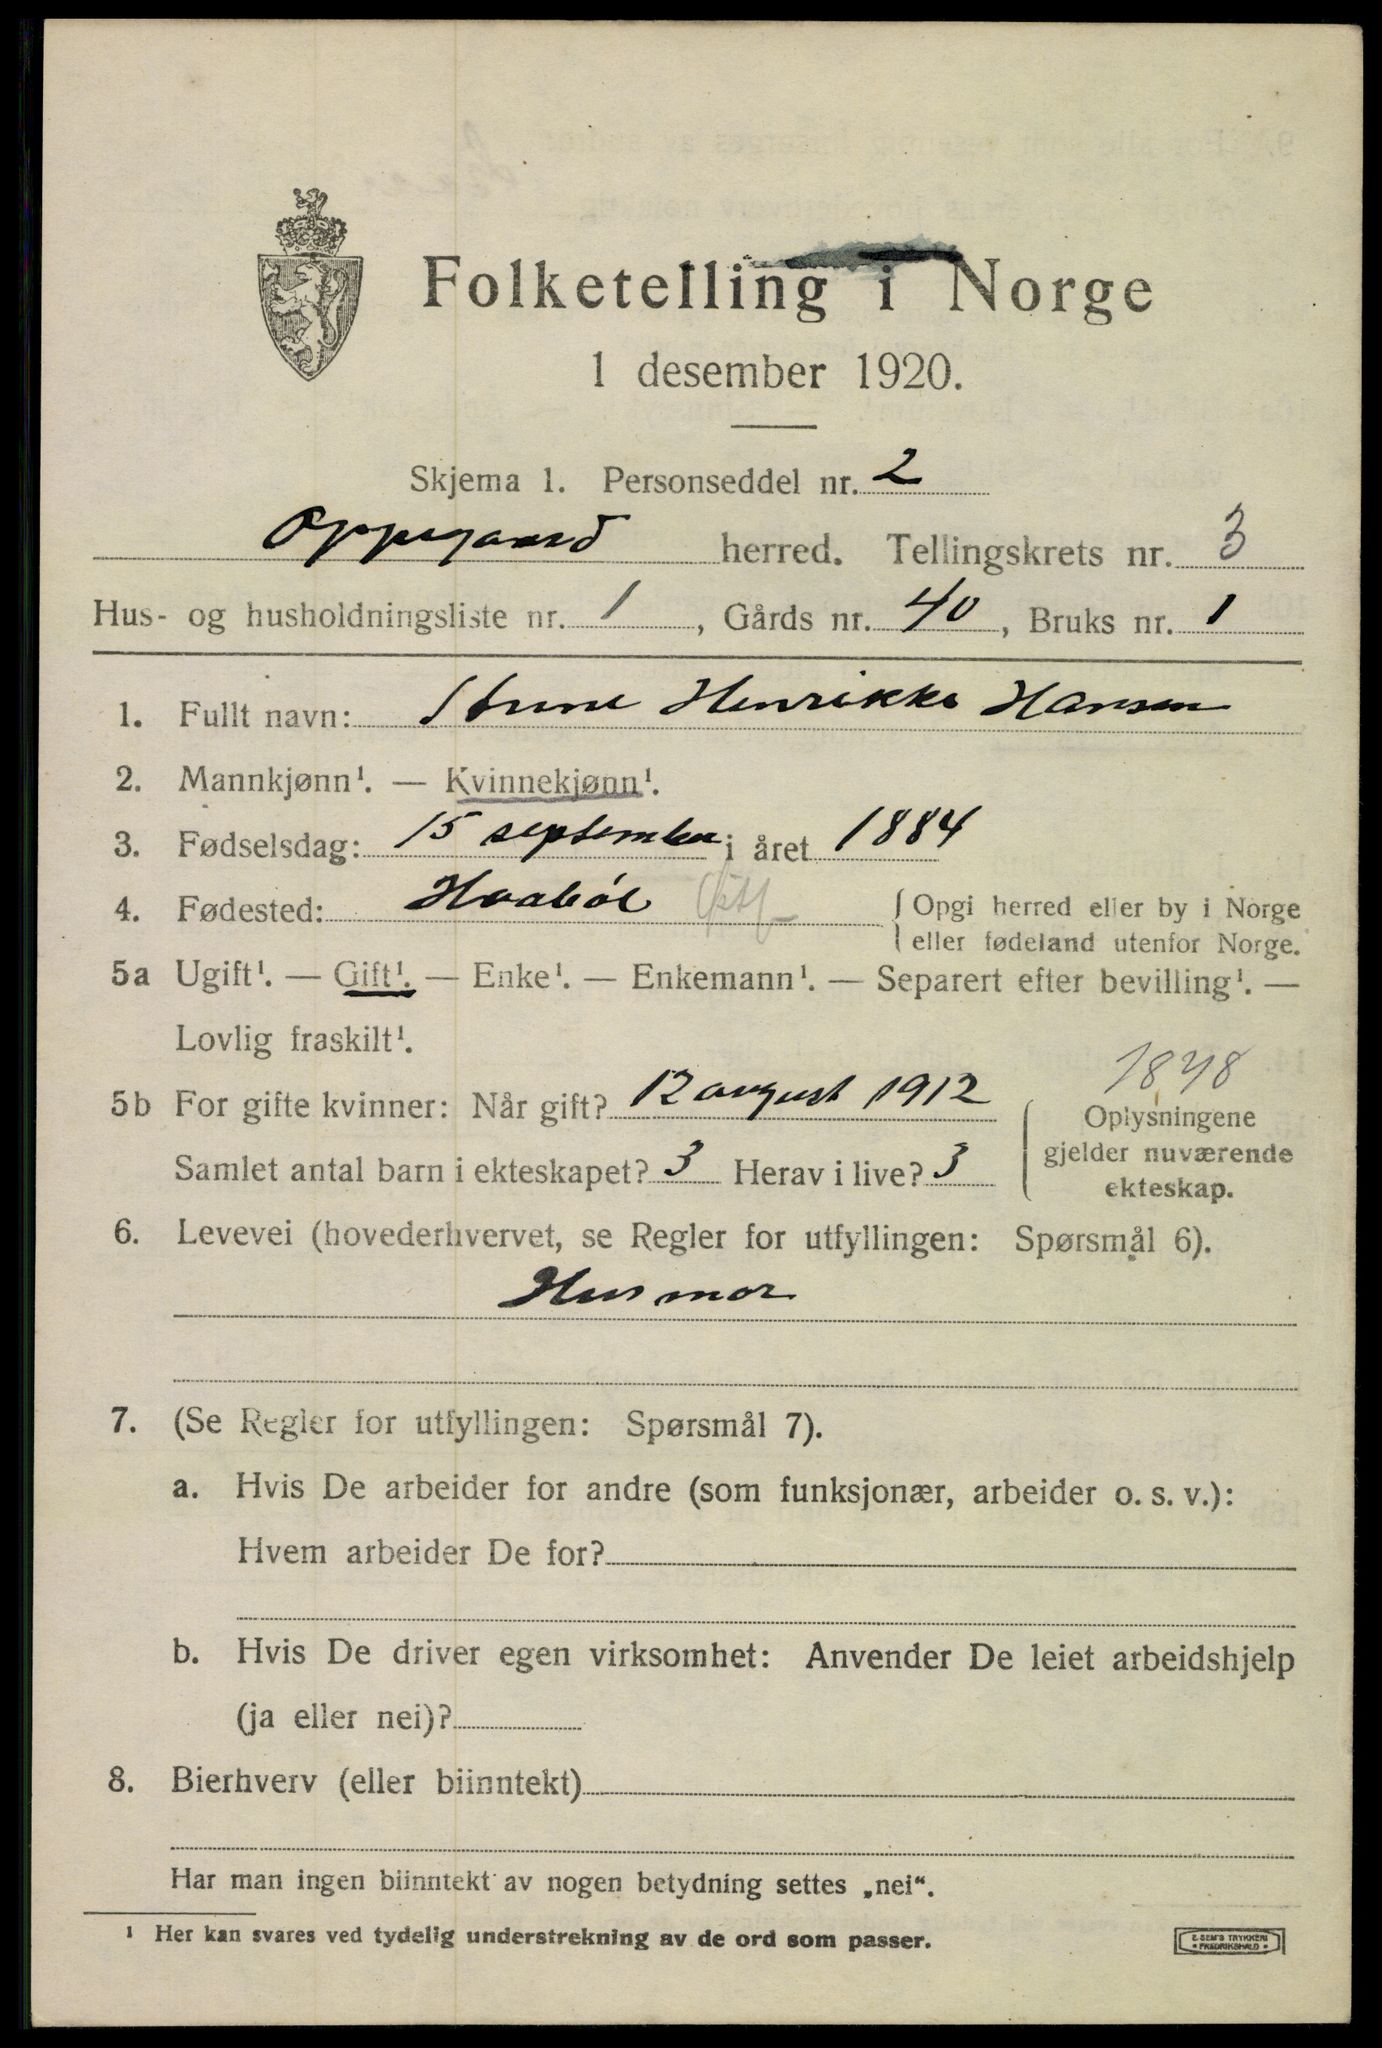 Folketelling i Norge
1 desember 1920.
Skjema 1. Personseddel nr. 2
Oppegaard herred. Tellingskrets nr. 3
Hus- og husholdningsliste nr. 1, Gårds nr. 40, Bruks nr. 1
1. Fullt navn: Henrikke Hansen
2. Mannkjønn¹. — Kvinnekjønn¹.
3. Fødselsdag: 15 september i året 1884
4. Fødested: Haabøl Østf { Opgi herred eller by i Norge
eller fødeland utenfor Norge.
5a Ugift¹. — Gift¹. — Enke¹. — Enkemann¹. — Separert efter bevilling¹. —
Lovlig fraskilt¹.
5b For gifte kvinner: Når gift? 12 august 1912
Samlet antal barn i ekteskapet? 3 Herav i live? 3
Oplysningene
gjelder nuværende
ekteskap.
6. Levevei (hovederhvervet, se Regler for utfyllingen: Spørsmål 6).
Husmor
7. (Se Regler for utfyllingen: Spørsmål 7).
a. Hvis De arbeider for andre (som funksjonær, arbeider o. s. v.):
Hvem arbeider De for?
b. Hvis De driver egen virksomhet: Anvender De leiet arbeidshjelp
(ja eller nei)?
8. Bierhverv (eller biinntekt)
Har man ingen biinntekt av nogen betydning settes „nei“.
¹ Her kan svares ved tydelig understrekning av de ord som passer.
E. SEM'S TRYKKERI
FREDRIKSHALD